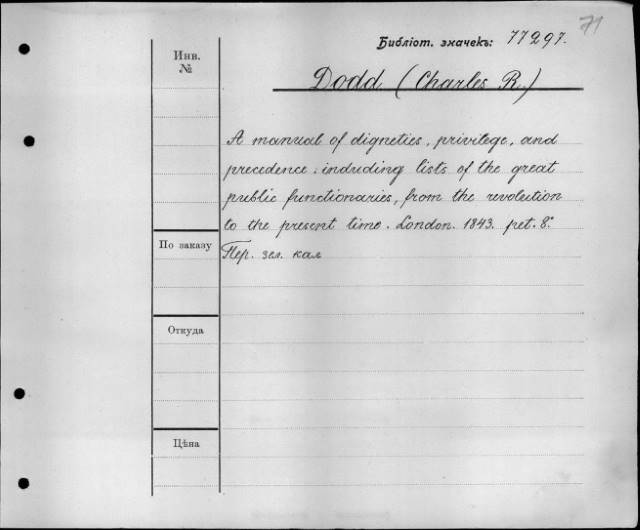 71
Библіот. значекъ: 77297.
Инв.
№
Dodd (Charles R.)
A manual of digneties, privilege, and
precedence: including lists of the great
public functionaries, from the revolution
to the present time. London. 1843. pet. 8.°
По заказу
Пер. зел. кал
Откуда
Цѣна